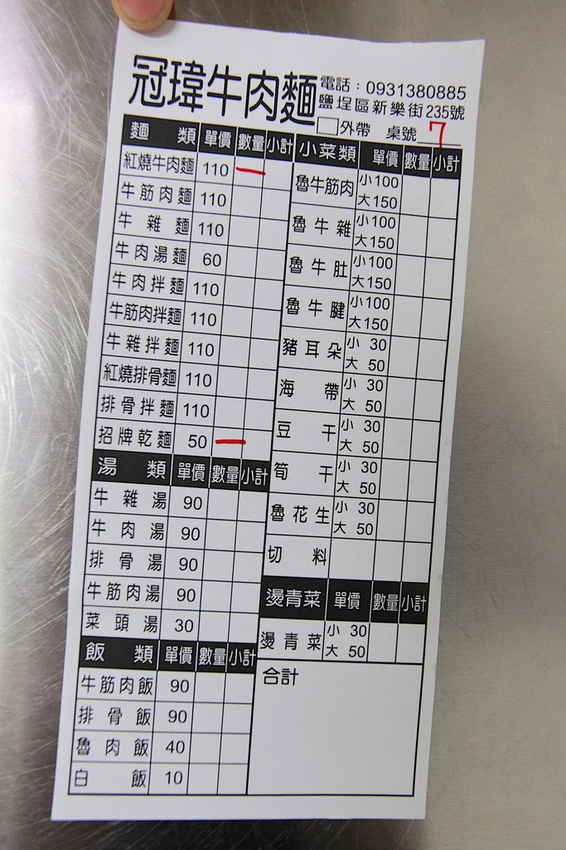 冠瑋牛肉麵
電話：0931380885
鹽埕區新樂街235號
外帶 桌號 7
麵類 單價 數量 小計
紅燒牛肉麵 110 一
牛筋肉麵 110
牛雜麵 110
牛肉湯麵 60
牛肉拌麵 110
牛筋肉拌麵 110
牛雜拌麵 110
紅燒排骨麵 110
排骨拌麵 110
招牌乾麵 50 一
湯類 單價 數量 小計
牛雜湯 90
牛肉湯 90
排骨湯 90
牛筋肉湯 90
菜頭湯 30
飯類 單價 數量 小計
牛筋肉飯 90
排骨飯 90
魯肉飯 40
白飯 10
小菜類 單價 數量 小計
魯牛筋肉 小100
大150
魯牛雜 小100
大150
魯牛肚 小100
大150
魯牛腱 小100
大150
豬耳朵 小 30
大 50
海帶 小 30
大 50
豆干 小 30
大 50
筍干 小 30
大 50
魯花生 小 30
大 50
切料
燙青菜 單價 數量 小計
燙青菜 小 30
大 50
合計